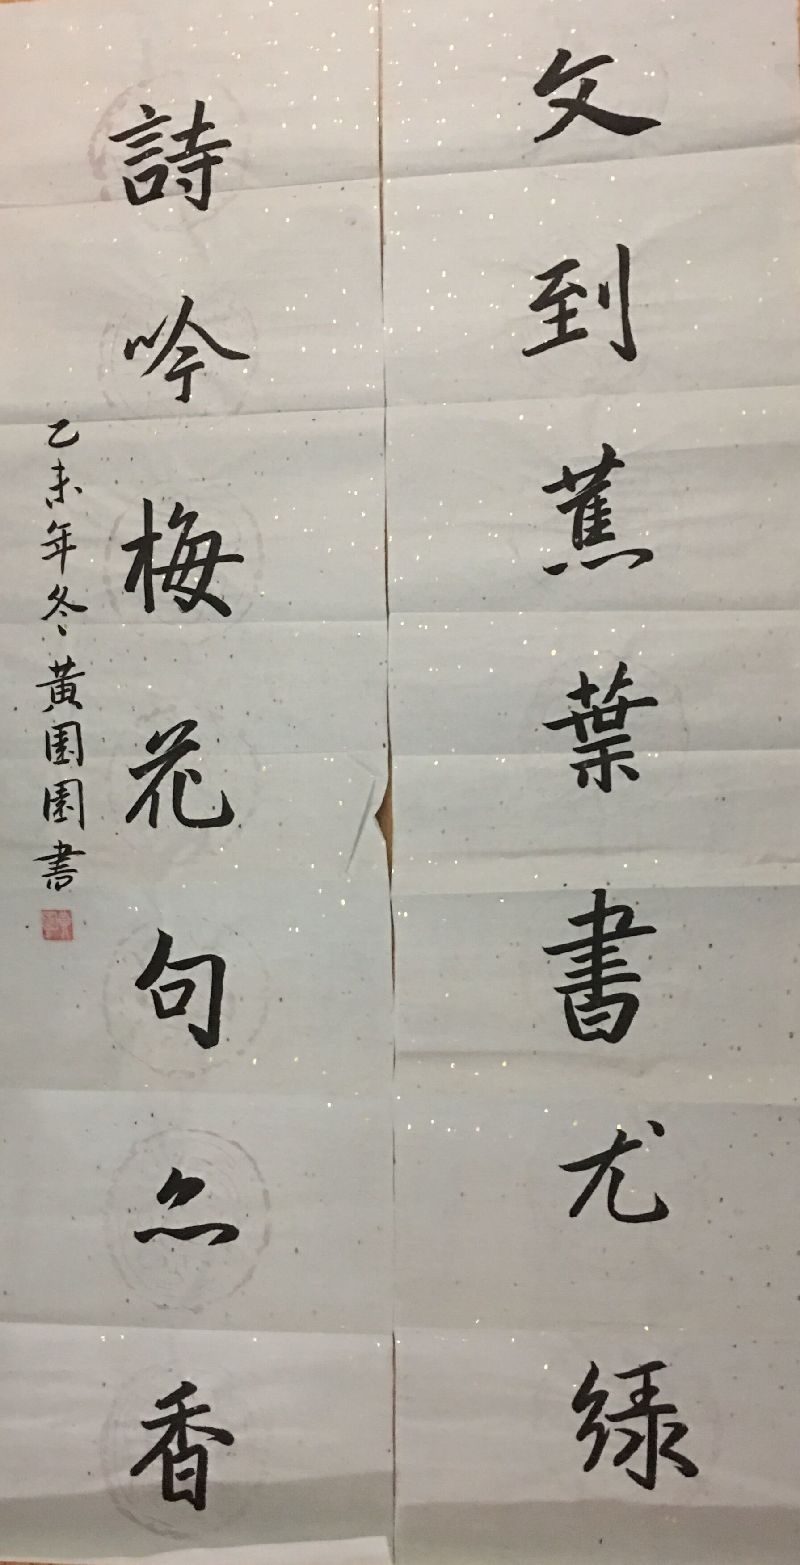 文到蕉葉書尤緑
詩吟梅花句亦香
乙未年冬黄園園書